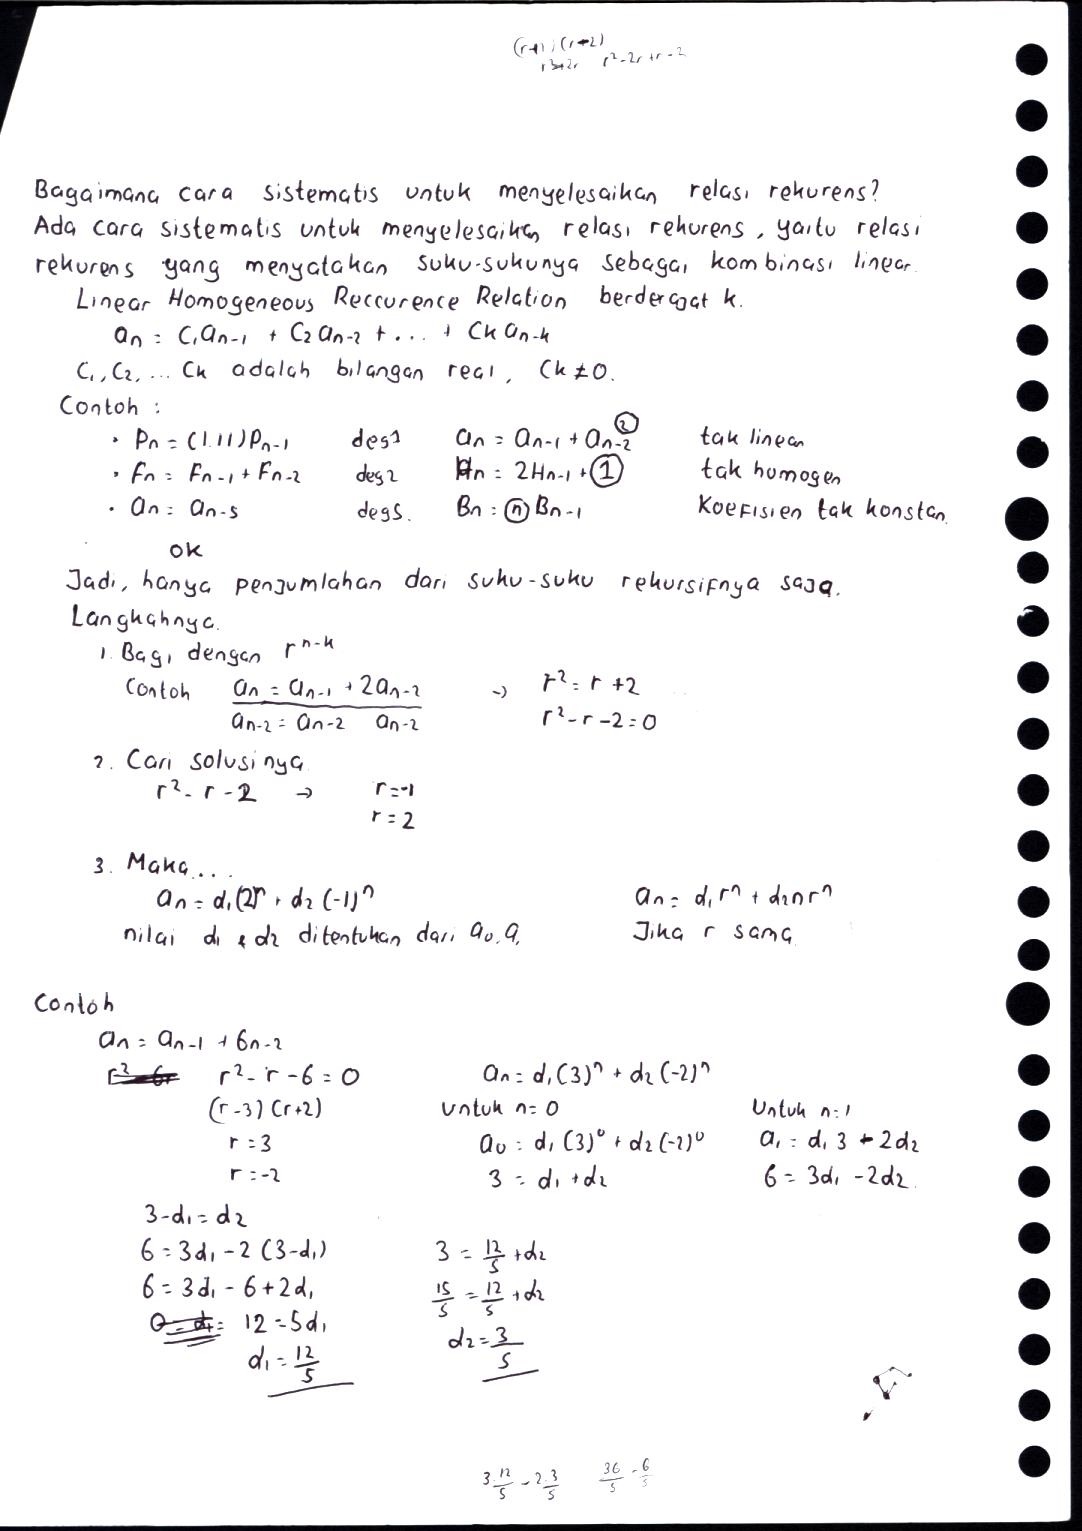 (r+1)(r-2)
r²-2r+r-2
Bagaimana cara sistematis untuk menyelesaikan relasi rekurens?
Ada cara sistematis untuk menyelesaikan relasi rekurens, yaitu relasi
rekurens yang menyatakan suku-sukunya sebagai kombinasi linear.
Linear Homogeneous Reccurence Relation berderajat k.
an = C1an-1 + C2an-2 + ... + Ck an-k
C1, C2, ... Ck adalah bilangan real, Ck ≠ 0.
Contoh :
• Pn = (1.11)Pn-1 deg1 an = an-1 + an-2² tak linear
• Fn = Fn-1 + Fn-2 deg2 Hn = 2Hn-1 + 1 tak homogen
• an = an-5 deg5. Bn = n Bn-1 Koefisien tak konstan.
OK
Jadi, hanya penjumlahan dari suku-suku rekursifnya saja.
Langkahnya.
1. Bagi dengan r^n-k
Contoh an = an-1 + 2an-2 → r² = r + 2
an-2 = an-2 an-2 r² - r - 2 = 0
2. Cari solusinya
r² - r - 2 → r = -1
r = 2
3. Maka...
an = d1(2)ⁿ + d2(-1)ⁿ an = d1rⁿ + d2nrⁿ
nilai d1 & d2 ditentukan dari a0, a1 Jika r sama
Contoh
an = an-1 + 6n-2
r² - r - 6 = 0 an = d1(3)ⁿ + d2(-2)ⁿ
(r-3)(r+2) Untuk n = 0 Untuk n = 1
r = 3 a0 = d1(3)⁰ + d2(-2)⁰ a1 = d1 3 - 2d2
r = -2 3 = d1 + d2 6 = 3d1 - 2d2
3 - d1 = d2
6 = 3d1 - 2(3-d1) 3 = 12/5 + d2
6 = 3d1 - 6 + 2d1 15/5 = 12/5 + d2
12 = 5d1 d2 = 3/5
d1 = 12/5
3·12/5 - 2·3/5 36/5 - 6/5